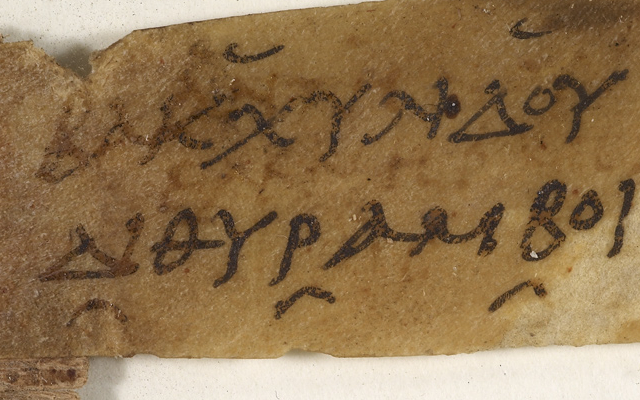 ΒΑΚΧΥΛΙΔΟΥ
ΔΙΘΥΡΑΜΒΟΙ